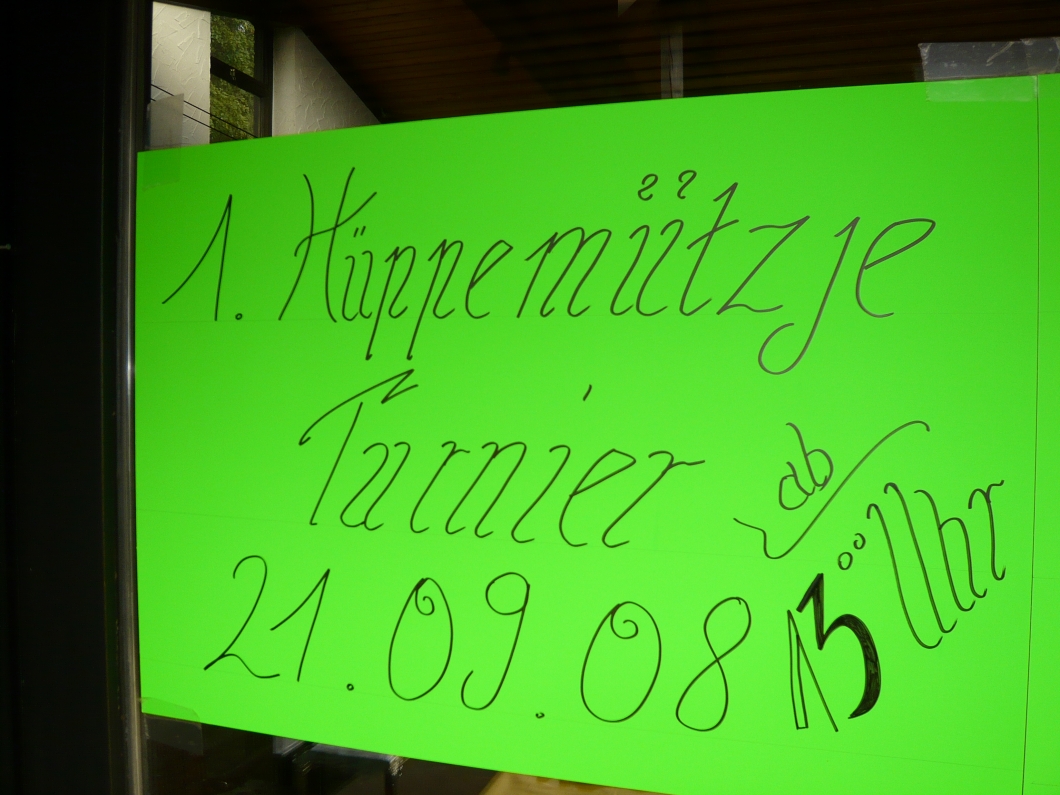 1. Hüppemützje
Turnier
ab
21.09.08 13⁰⁰ Uhr